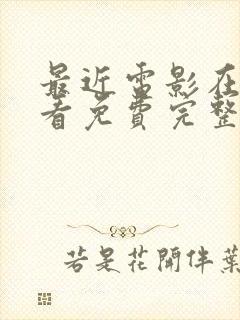 最近电影在
看免费完整
若是花開伴葉